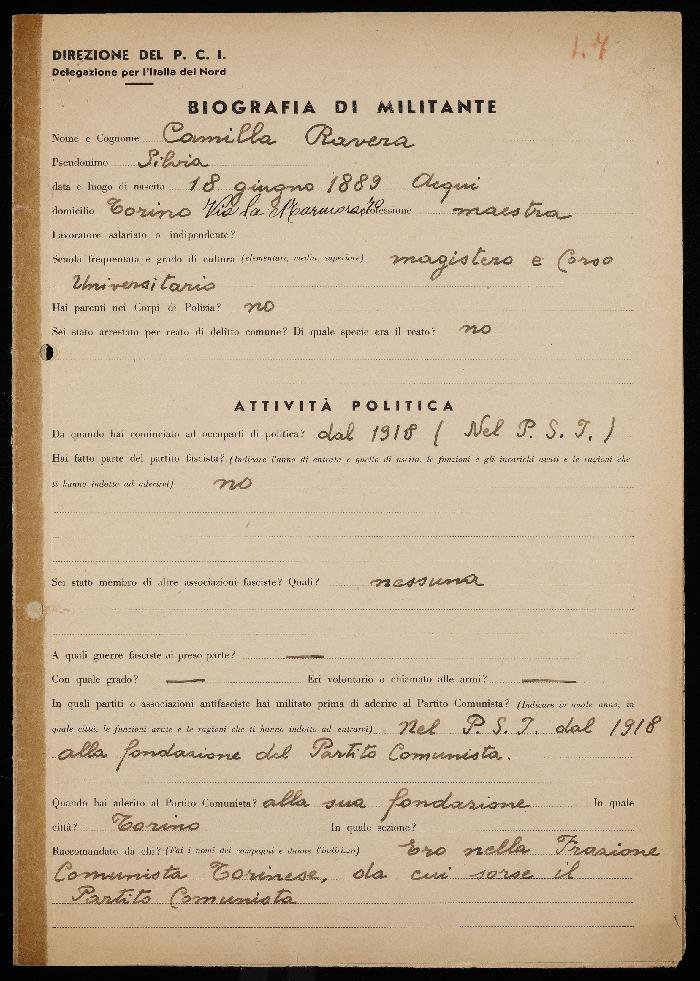 1.7
DIREZIONE DEL P. C. I.
Delegazione per l'Italia del Nord
BIOGRAFIA DI MILITANTE
Nome e Cognome Camilla Ravera
Pseudonimo Silvia
data e luogo di nascita 18 giugno 1889 Acqui
domicilio Torino Via La Marmora professione maestra
Lavoratore salariato o indipendente?
Scuola frequentata e grado di cultura (elementare, media, superiore) magistero e Corso
Universitario
Hai parenti nei Corpi di Polizia? no
Sei stato arrestato per reato di delitto comune? Di quale specie era il reato? no
ATTIVITÀ POLITICA
Da quando hai cominciato ad occuparti di politica? dal 1918 ( Nel P. S. I. )
Hai fatto parte del partito fascista? (Indicare l'anno di entrata e quello di uscita, le funzioni e gli incarichi avuti e le ragioni che
ti hanno indotto ad aderirvi) no
Sei stato membro di altre associazioni fasciste? Quali? nessuna
A quali guerre fasciste ai preso parte? —
Con quale grado? — Eri volontario o chiamato alle armi? —
In quali partiti o associazioni antifasciste hai militato prima di aderire al Partito Comunista? (Indicare in quale anno, in
quale città, le funzioni avute e le ragioni che ti hanno indotto ad entrarvi) Nel P. S. I. dal 1918
alla fondazione del Partito Comunista.
Quando hai aderito al Partito Comunista? alla sua fondazione In quale
città? Torino In quale sezione?
Raccomandato da chi? (Fai i nomi dei compagni e danne l'indirizzo) Ero nella Frazione
Comunista Torinese, da cui sorse il
Partito Comunista